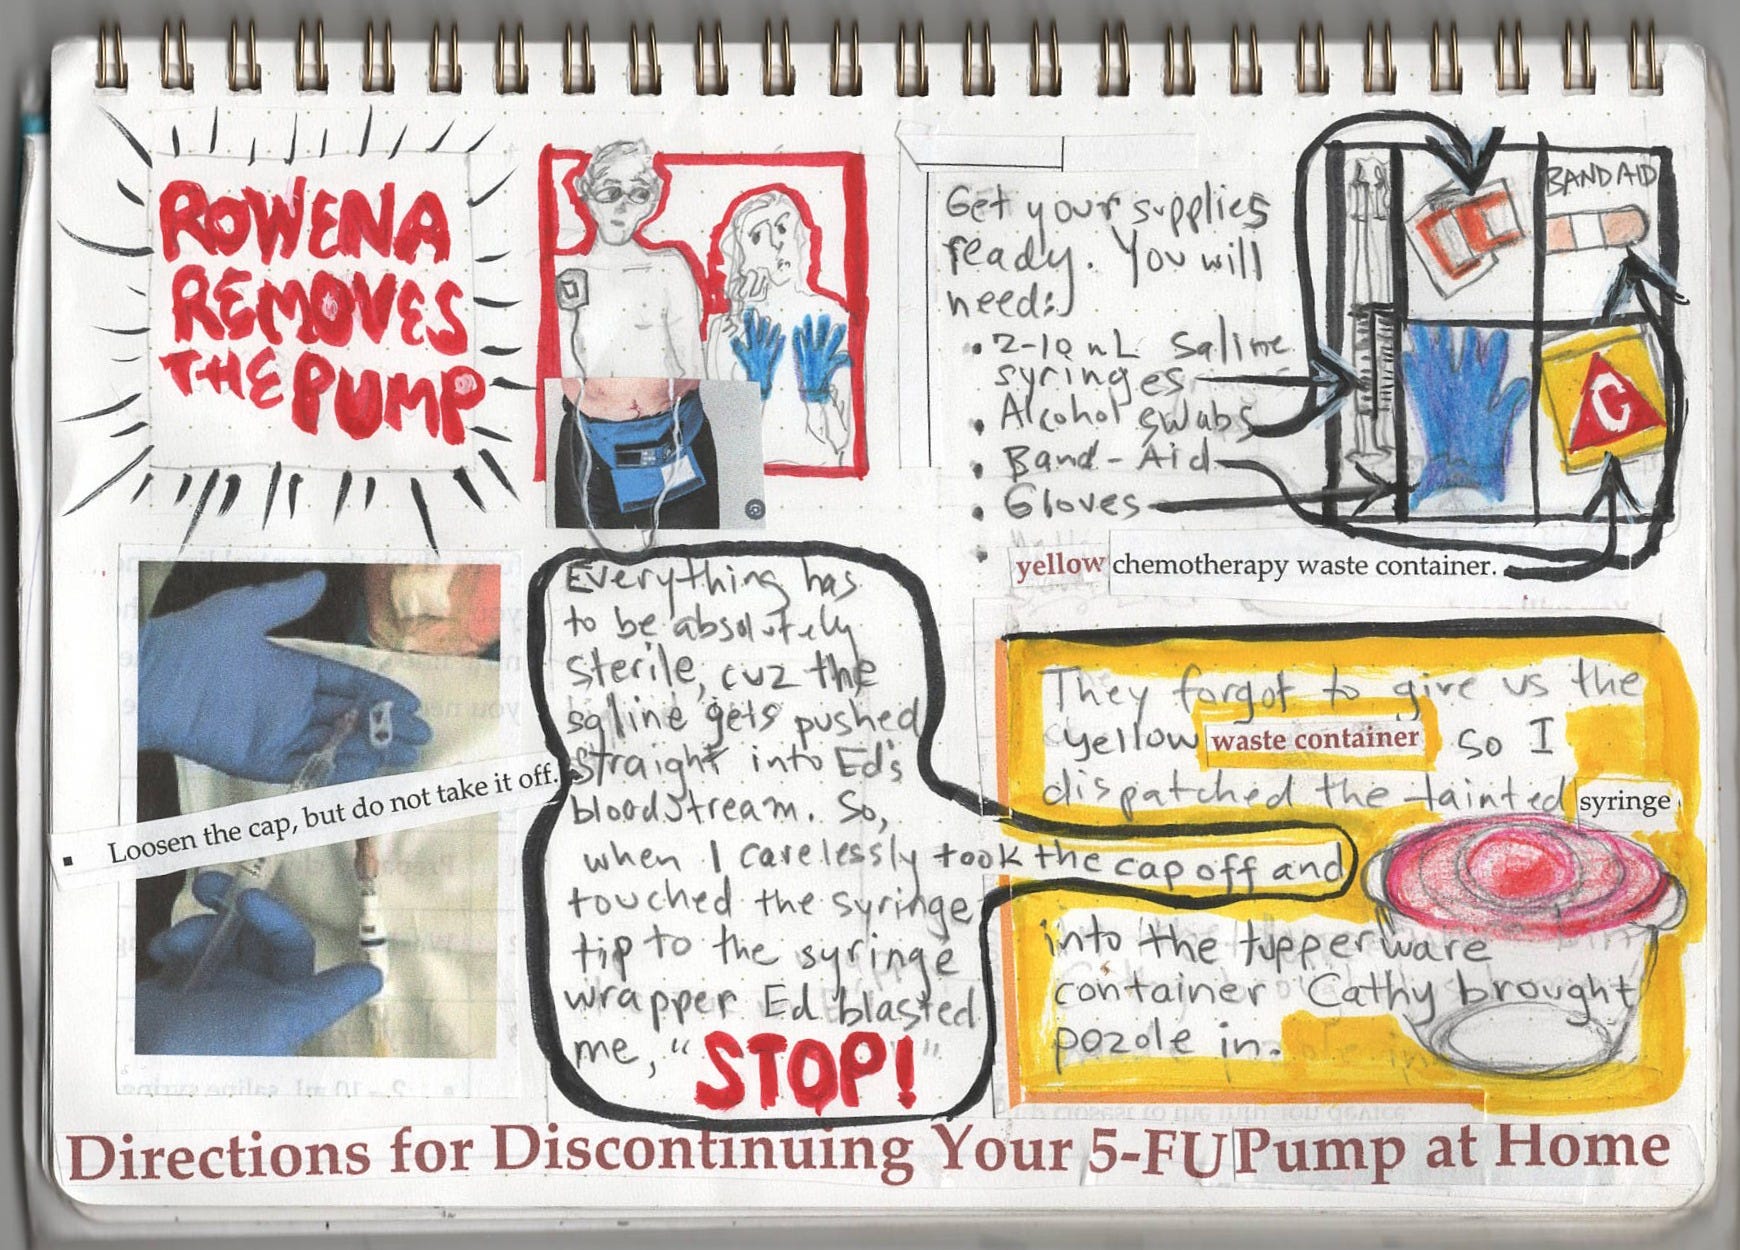 ROWENA
REMOVES
THE PUMP
Get your supplies
ready. You will
need:
• 2-10 mL Saline
syringes
• Alcohol swabs
• Band-Aid
• Gloves
yellow chemotherapy waste container.
BAND AID
C
▪ Loosen the cap, but do not take it off.
Everything has
to be absolutely
sterile, cuz the
saline gets pushed
straight into Ed's
bloodstream. So,
when I carelessly took the cap off and
touched the syringe
tip to the syringe
wrapper Ed blasted
me, "STOP!"
They forgot to give us the
yellow waste container so I
dispatched the tainted syringe
into the tupperware
container Cathy brought
pozole in.
Directions for Discontinuing Your 5-FU Pump at Home